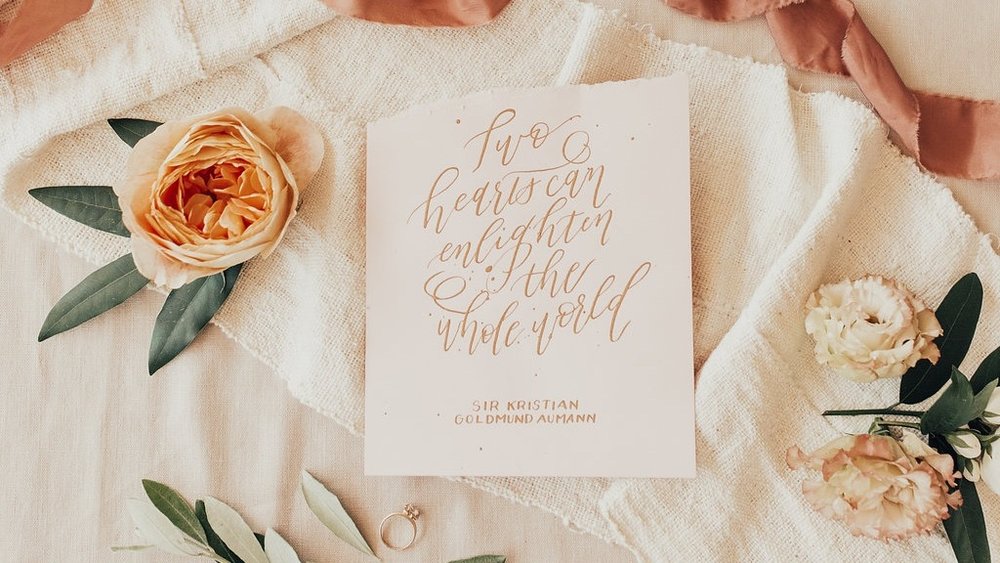 Two
hearts can
enlighten
the
whole world
SIR KRISTIAN
GOLDMUND AUMANN